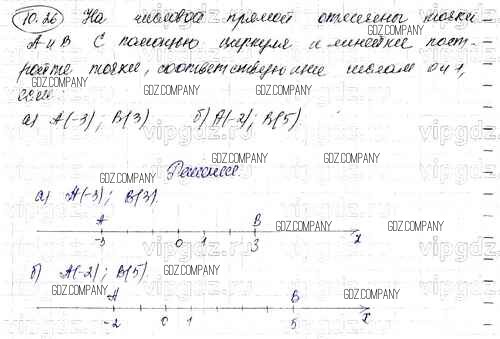 10.26 На числовой прямой отмечены точки
А и В С помощью циркуля и линейки пост-
ройте точки, соответствующие числам 0 и 1,
если:
а) А(-3); В(3) б) А(-2); В(5)
Решение.
а) А(-3); В(3).
А В
-3 0 1 3 x
б) А(-2); В(5)
А В
-2 0 1 5 x
GDZ.COMPANY
vipgdz.ru